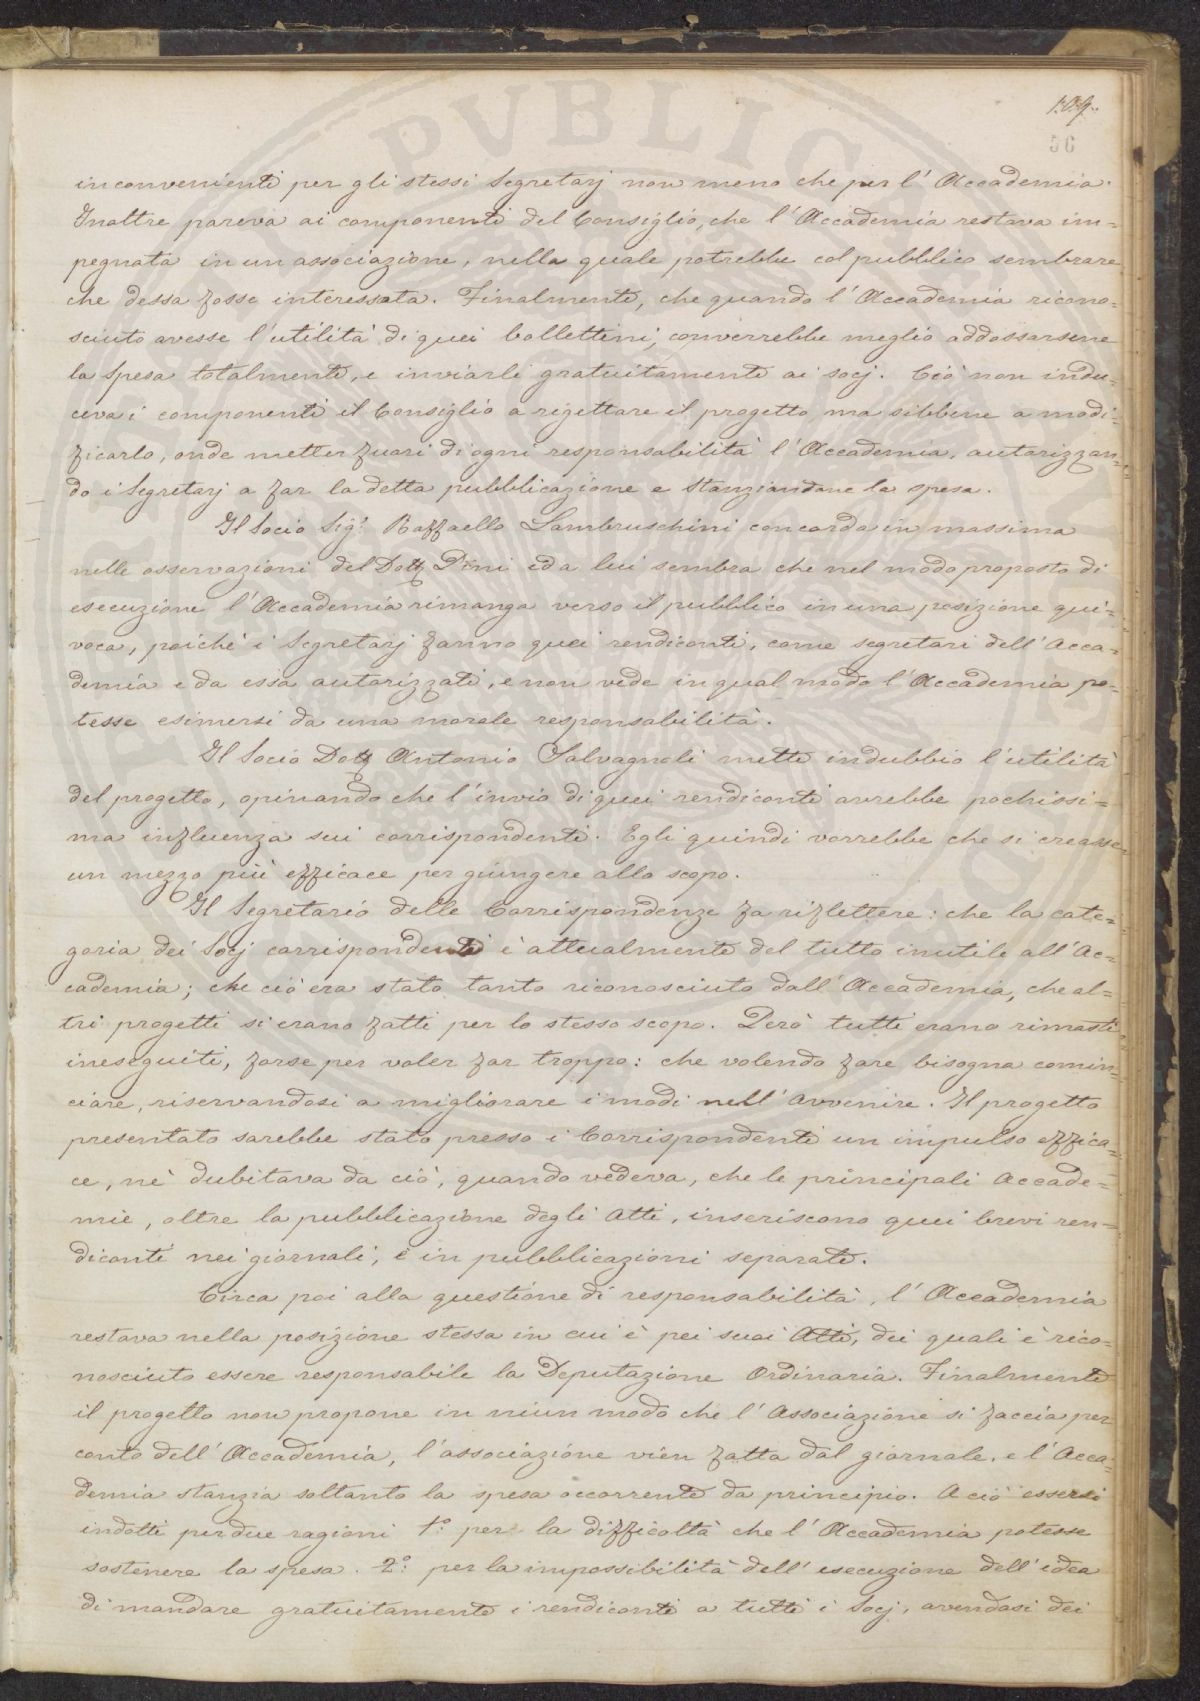 109.
56
inconvenienti per gli stessi Segretarj non meno che per l'Accademia.
Inoltre pareva ai componenti del Consiglio, che l'Accademia restava im=
pegnata in un associazione, nella quale potrebbe col pubblico sembrare
che dessa fosse interessata. Finalmente, che quando l'Accademia ricono=
sciuto avesse l'utilità di quei bollettini, converrebbe meglio addossarsene
la spesa totalmente, e inviarli gratuitamente ai socj. Ciò non indu=
ceva i componenti il Consiglio a rigettare il progetto ma sibbene a modi=
ficarlo, onde metter fuori di ogni responsabilità l'Accademia, autorizzan=
do i Segretarj a far la detta pubblicazione e stanziandone la spesa.
Il Socio Sig.r Raffaello Lambruschini concorda in massima
nelle osservazioni del Dott. Pini ed a lui sembra che nel modo proposto di
esecuzione l'Accademia rimanga verso il pubblico in una posizione qui=
voca, poichè i Segretarj fanno quei rendiconti, come segretari dell'Acca=
demia e da essa autorizzati, e non vede in qual modo l'Accademia po=
tesse esimersi da una morale responsabilità.
Il Socio Dott. Antonio Salvagnoli mette indubbio l'utilità
del progetto, opinando che l'invio di quei rendiconti avrebbe pochissi=
ma influenza sui corrispondenti. Egli quindi vorrebbe che si creasse
un mezzo più efficace per giungere allo scopo.
Il Segretario delle Corrispondenze fa riflettere: che la cate=
goria dei Socj corrispondenti è attualmente del tutto inutile all'Ac=
cademia; che ciò era stato tanto riconosciuto dall'Accademia, che al=
tri progetti si erano fatti per lo stesso scopo. Però tutti erano rimasti
ineseguiti, forse per voler far troppo: che volendo fare bisogna comin=
ciare, riservandosi a migliorare i modi nell'avvenire. Il progetto
presentato sarebbe stato presso i Corrispondenti un impulso effica=
ce, nè dubitava da ciò, quando vedeva, che le principali Accade=
mie, oltre la pubblicazione degli Atti, inseriscono quei brevi ren=
diconti nei giornali, e in pubblicazioni separate.
Circa poi alla questione di responsabilità, l'Accademia
restava nella posizione stessa in cui è pei suoi Atti, dei quali è rico=
nosciuto essere responsabile la Deputazione Ordinaria. Finalmente
il progetto non propone in niun modo che l'Associazione si faccia per
conto dell'Accademia, l'associazione vien fatta dal giornale, e l'Acca=
demia stanzia soltanto la spesa occorrente da principio. A ciò essersi
indotti per due ragioni 1.° per la difficoltà che l'Accademia potesse
sostenere la spesa. 2.° per la impossibilità dell'esecuzione dell'idea
di mandare gratuitamente i rendiconti a tutti i Socj, avendosi dei